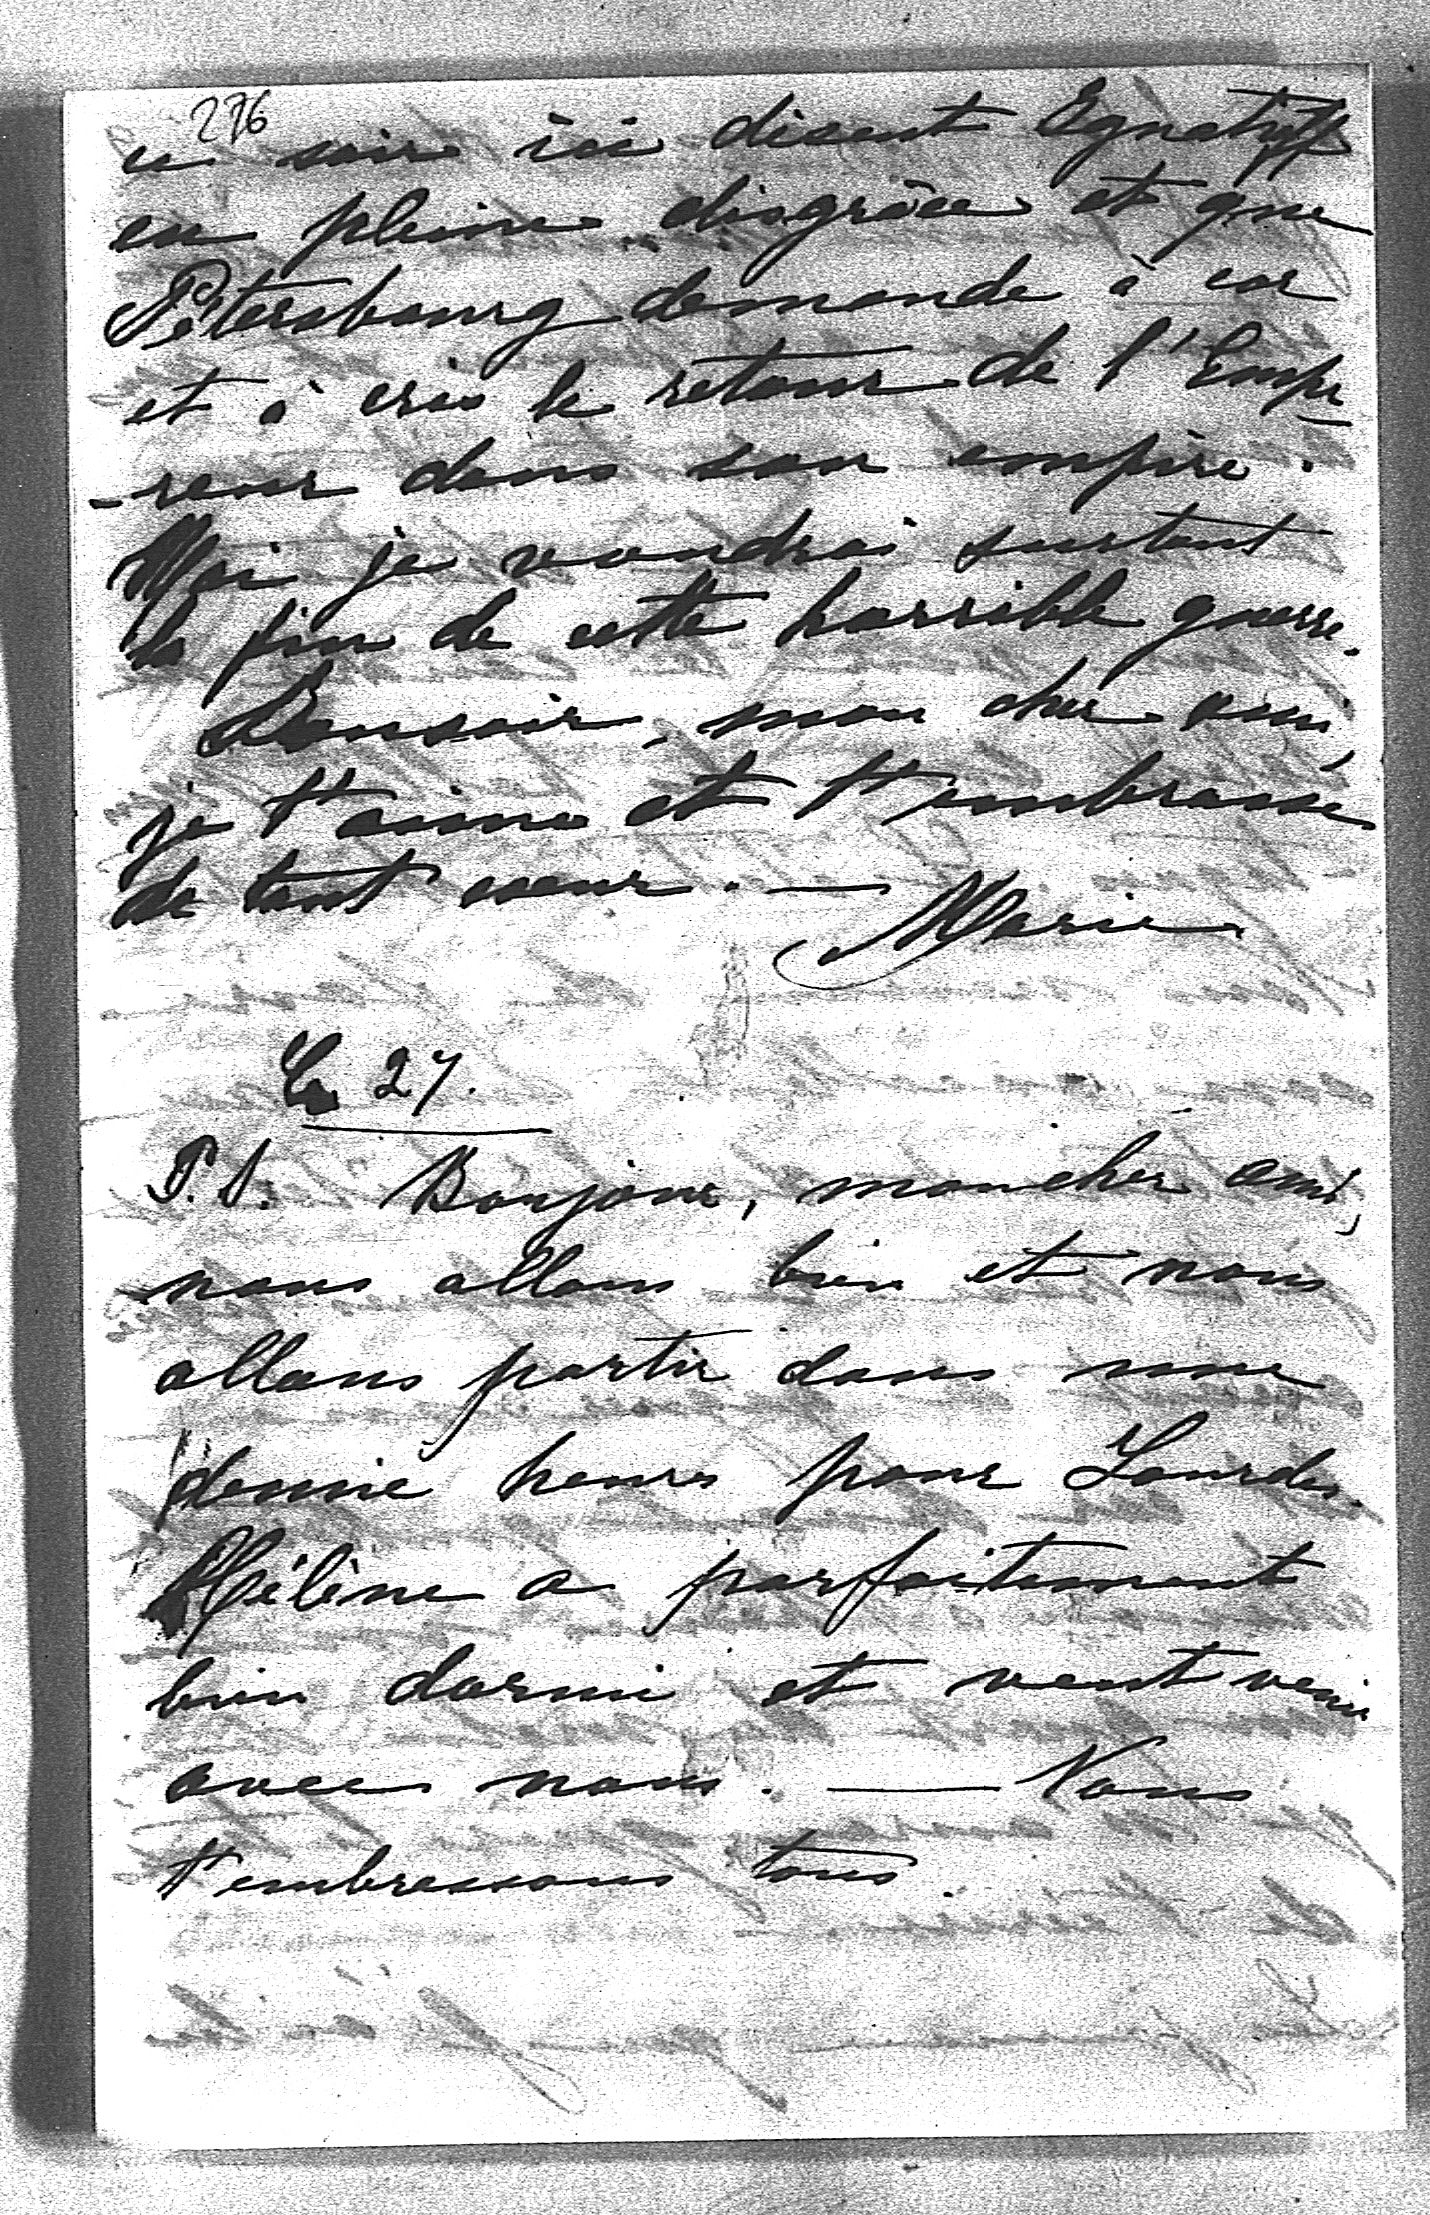 276
ce soir ici disent Egnatieff
en pleine disgrâce et que
Pétersbourg demande à cor
et à cris le retour de l'Empe
-reur dans son empire.
Moi je voudrai surtout
la fin de cette horrible guerre.
Bonsoir, mon cher ami,
je t'aime et t'embrasse
de tout coeur. — Marie
Le 27.
P.S. Bonjour, mon cher ami,
nous allons bien et nous
allons partir dans une
demie heure pour Lourdes.
Hélène a parfaitement
bien dormi et veut venir
avec nous. — Nous
t'embrassons tous.